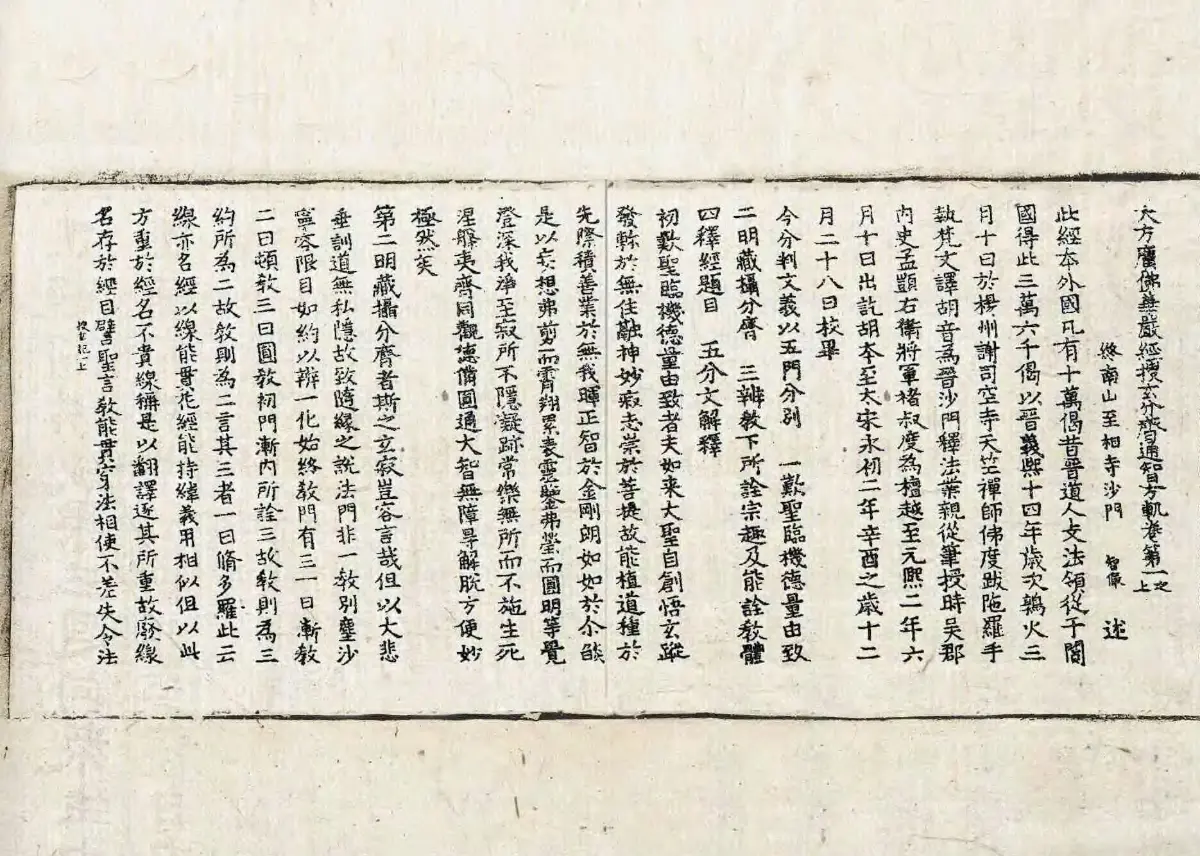 大方廣佛華嚴經搜玄分齊通智方軌卷第一之上
終南山至相寺沙門 智儼 述
此經本外國凡有十萬偈昔晉道人支法領從于闐
國得此三萬六千偈以晉義熙十四年歲次鶉火三
月十日於楊州謝司空寺天竺禪師佛度跋陁羅手
執梵文譯胡音為晉沙門釋法業親從筆授時吳郡
內史孟顗右衛將軍褚叔度為檀越至元熙二年六
月十日出訖胡本至大宋永初二年辛酉之歲十二
月二十八日校畢
今分判文義以五門分別 一歎聖臨機德量由致
二明藏攝分齊 三辨教下所詮宗趣及能詮教體
四釋經題目 五分文解釋
初歎聖臨機德量由致者夫如来大聖自創悟玄蹤
發軫於無住融神妙寂志崇於菩提故能植道種於
先際積善業於無我暉正智於金剛朗如如於尒㷔
是以妄想弗剪而霄翔累表靈鑒弗瑩而圓明等覺
澄深我淨至寂所不隱凝跡常樂無所而不施生死
涅槃夷齊同觀德備圓通大智無障㝵解脫方便妙
極然矣
第二明藏攝分齊者斯之玄寂豈容言哉但以大悲
垂訓道無私隱故致隨緣之說法門非一教別塵沙
寧容限目如約以辨一化始終教門有三一曰漸教
二曰頓教三曰圓教初門漸內所詮三故教則為三
約所為二故教則為二言其三者一曰脩多羅此云
線亦名經以線能貫花經能持緯義用相似但以此
方重於經名不貴線稱是以翻譯逐其所重故廢線
名存於經目譬聖言教能貫穿法相使不差失令法